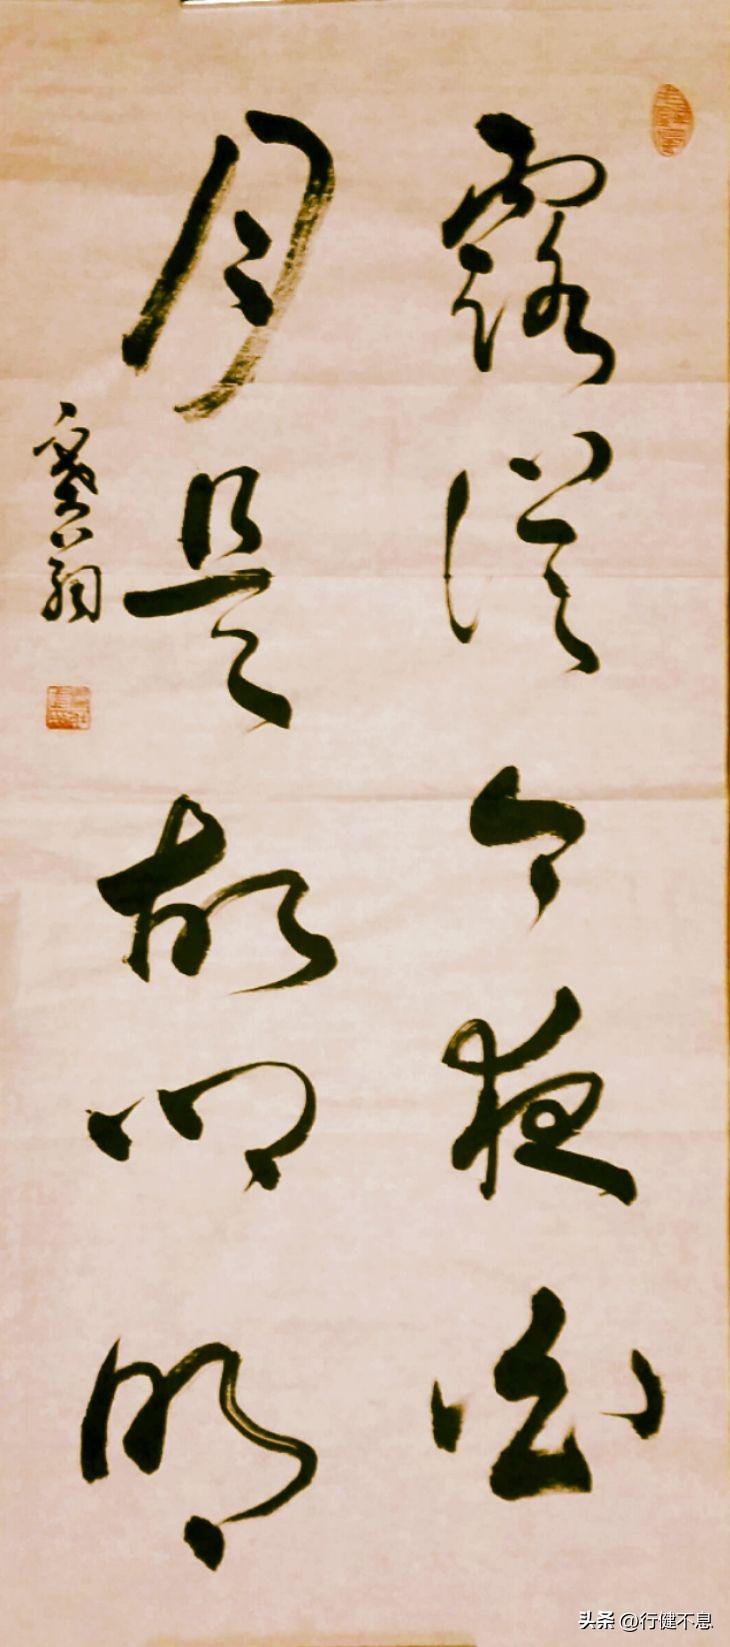 露從今夜白
月是故鄉明
头条 @行健不息